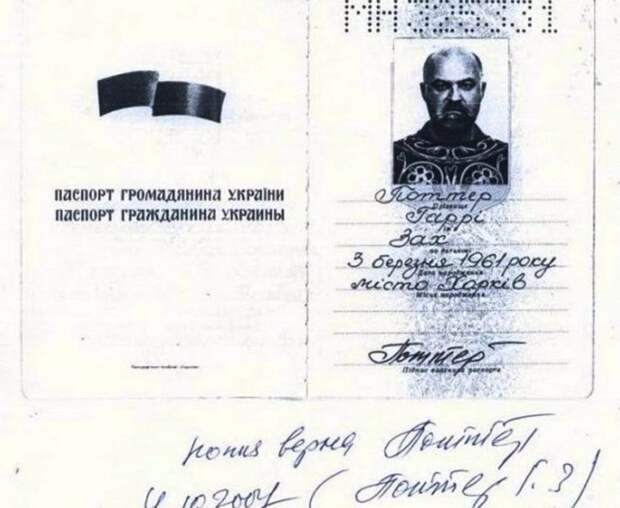 МН325331
ПАСПОРТ ГРОМАДЯНИНА УКРАЇНИ
ПАСПОРТ ГРАЖДАНИНА УКРАИНЫ
Поттер
Прізвище
Гаррі
Ім'я
Зах
по батькові
3 березня 1961 року
Дата народження
місто Харків
Місце народження
Поттер
Підпис власника паспорта
копия верна Поттер
(Поттер Г. З)